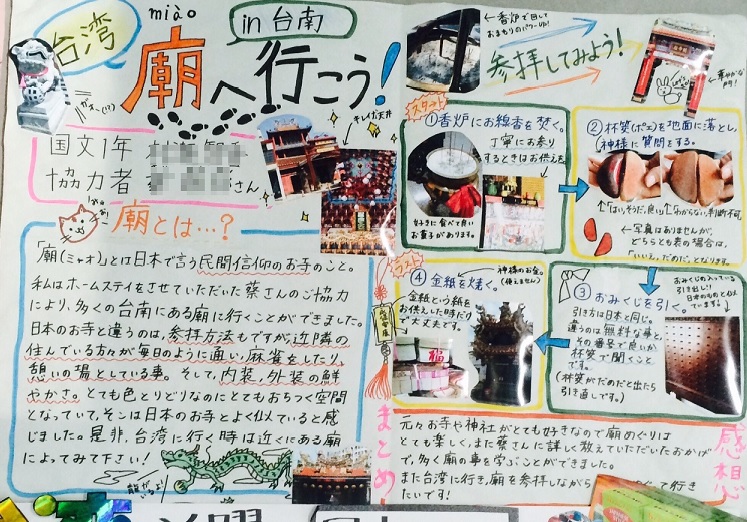 miào
台湾
廟へ行こう!
in 台南
国文1年
協力者 さん
キレイな天井
廟とは…?
「廟(ミャオ)」とは日本で言う民間信仰のお寺のこと。
私はホームステイをさせていただいた蔡さんのご協力
により、多くの台南にある廟に行くことができました。
日本のお寺と違うのは、参拝方法もですが、近隣の
住んでいる方々が毎日のように通い、麻雀をしたり、
憩いの場としている事。そして、内装、外装の鮮
やかさ。とても色とりどりなのにとてもおちつく空間
となっていて、そこは日本のお寺とよく似ていると感
じました。是非、台湾に行く時は近くにある廟
によってみて下さい!
龍がいるよ!
←香炉で回して
おまもりのパワーUP!
参拝してみよう!
←華やかな
門!
スタート
①香炉にお線香を焚く。
丁寧にお参り
するときはお供えを
好きに食べて良い
お菓子があります。
②杯筊(ポエ)を地面に落とし、
神様に質問をする。
↑「はい、そうだ、良い」
↑「わからない、判断不可」
←写真はありませんが、
どちらとも表の場合は、
「いいえ、だめだ」となります。
③おみくじを引く。
おみくじの入っている
引き出し!
日本のものと似て
います→
引き方は日本と同じ。
違うのは無料な事と、
その番号で良いか
杯筊で聞くこと
です。
(杯筊がだめだと出たら
引き直しです。)
ラスト
④金紙を燒く。
神様のお金。
(使えません)
金紙という紙を
お供えした時だけ
で大丈夫です。
福
まとめ
感想
元々お寺や神社がとても好きなので廟めぐりは
とても楽しく、また蔡さんに詳しく教えていただいたおかげ
で、多く廟の事を学ぶことができました。
また台湾に行き、廟を参拝しながら
て行き
たいです!